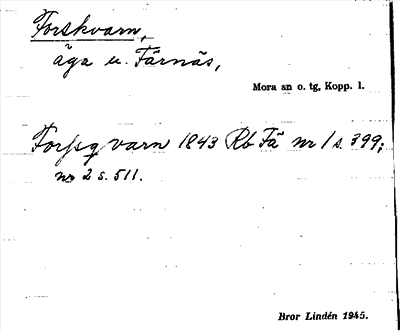 Forskvarn,
äga u. Färnäs,
Mora sn o. tg, Kopp. l.
Forssqvarn 1843 Rb Fä nr 1 s. 399;
nr 2 s. 511.
Bror Lindén 1945.